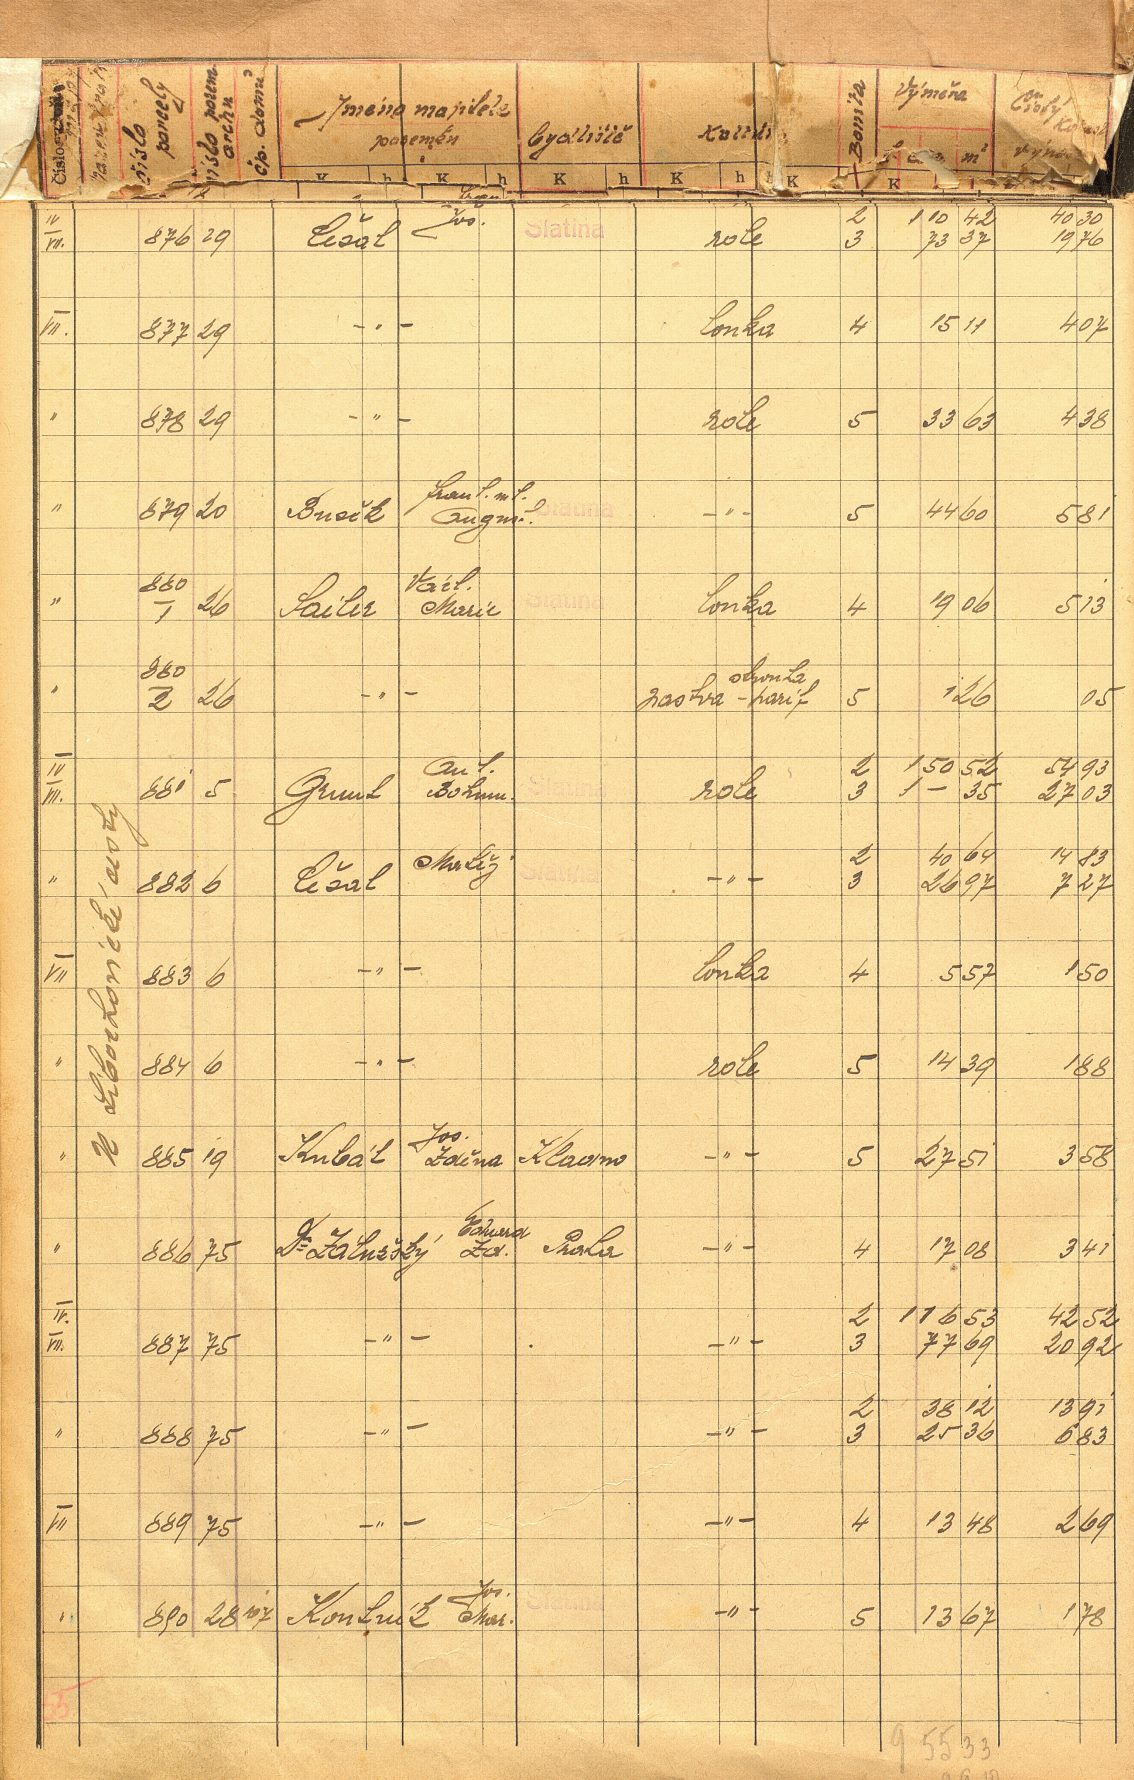 číslo parcely číslo pozem. archu čp. domů Jméno majitele pozemku bydliště Bonita Výměra m² Čistý
K h K h K h K h K K
IV Jos. 2 1 10 42 40 30
VII. 876 29 Češal Slatina role 3 73 37 19 76
VII. 877 29 -"- louka 4 15 11 4 07
" 878 29 -"- role 5 33 63 4 38
frant. ml.
" 879 20 Slatina -"- 5 44 60 5 81
880 Václ.
" 1 26 Sailer Marie Slatina louka 4 19 06 5 13
880
" 2 26 -"- 5 1 26 05
IV Ant. 2 1 50 52 54 93
VII. 881 5 Grunt Bohum. Slatina role 3 1 - 35 27 03
Matěj 2 40 64 14 83
" 882 6 Češal Slatina -"- 3 26 97 7 27
VII 883 6 -"- louka 4 5 57 1 50
" 884 6 -"- role 5 14 39 1 88
Jos.
" 885 19 Kubát Zděna Kladno -"- 5 27 51 3 58
Eduard
" 886 75 Dr Záluský Zd. Praha -"- 4 17 08 3 41
IV. 2 1 16 53 42 52
VII. 887 75 -"- -"- 3 77 69 20 92
2 38 12 13 91
" 888 75 -"- -"- 3 25 36 6 83
VII 889 75 -"- -"- 4 13 48 2 69
Jos.
" 890 28 107 Mar. Slatina -"- 5 13 67 1 78
55
9 55 33